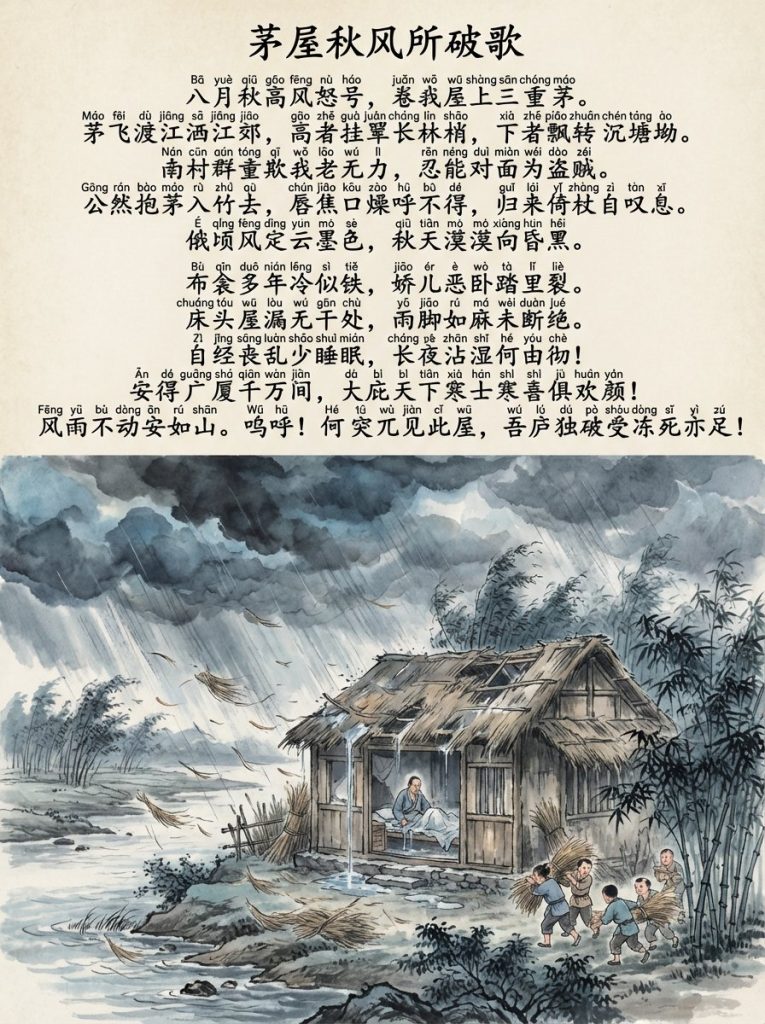 茅屋秋风所破歌
Bā yuè qiū gāo fēng nù háo juǎn wǒ wū shàng sān chóng máo
八月秋高风怒号，卷我屋上三重茅。
Máo fēi dù jiāng sǎ jiāng jiāo gāo zhě guà juàn cháng lín shāo xià zhě piāo zhuǎn chén táng ào
茅飞渡江洒江郊，高者挂罩长林梢，下者飘转沉塘坳。
Nán cūn qún tóng qī wǒ lǎo wú lì rěn néng duì miàn wéi dào zéi
南村群童欺我老无力，忍能对面为盗贼。
Gōng rán bào máo rù zhú qù chún jiāo kǒu zào hū bù dé guī lái yǐ zhàng zì tàn xī
公然抱茅入竹去，唇焦口燥呼不得，归来倚杖自叹息。
É qǐng fēng dìng yún mò sè qiū tiān mò mò xiàng hūn hēi
俄顷风定云墨色，秋天漠漠向昏黑。
Bù qīn duō nián lěng sì tiě jiāo ér è wò tà lǐ liè
布衾多年冷似铁，娇儿恶卧踏里裂。
chuáng tóu wū lòu wú gān chù yǔ jiǎo rú má wèi duàn jué
床头屋漏无干处，雨脚如麻未断绝。
Zì jīng sāng luàn shǎo shuì mián cháng yè zhān shī hé yóu chè
自经丧乱少睡眠，长夜沾湿何由彻！
Ān dé guǎng shà qiān wàn jiān dà bì tiān xià hán shì shì jù huān yán
安得广厦千万间，大庇天下寒士寒喜俱欢颜！
Fēng yǔ bù dòng ān rú shān Wū hū Hé tū wù jiàn cǐ wū wú lú dú pò shòu dòng sǐ yì zú
风雨不动安如山。呜呼！何突兀见此屋，吾庐独破受冻死亦足！